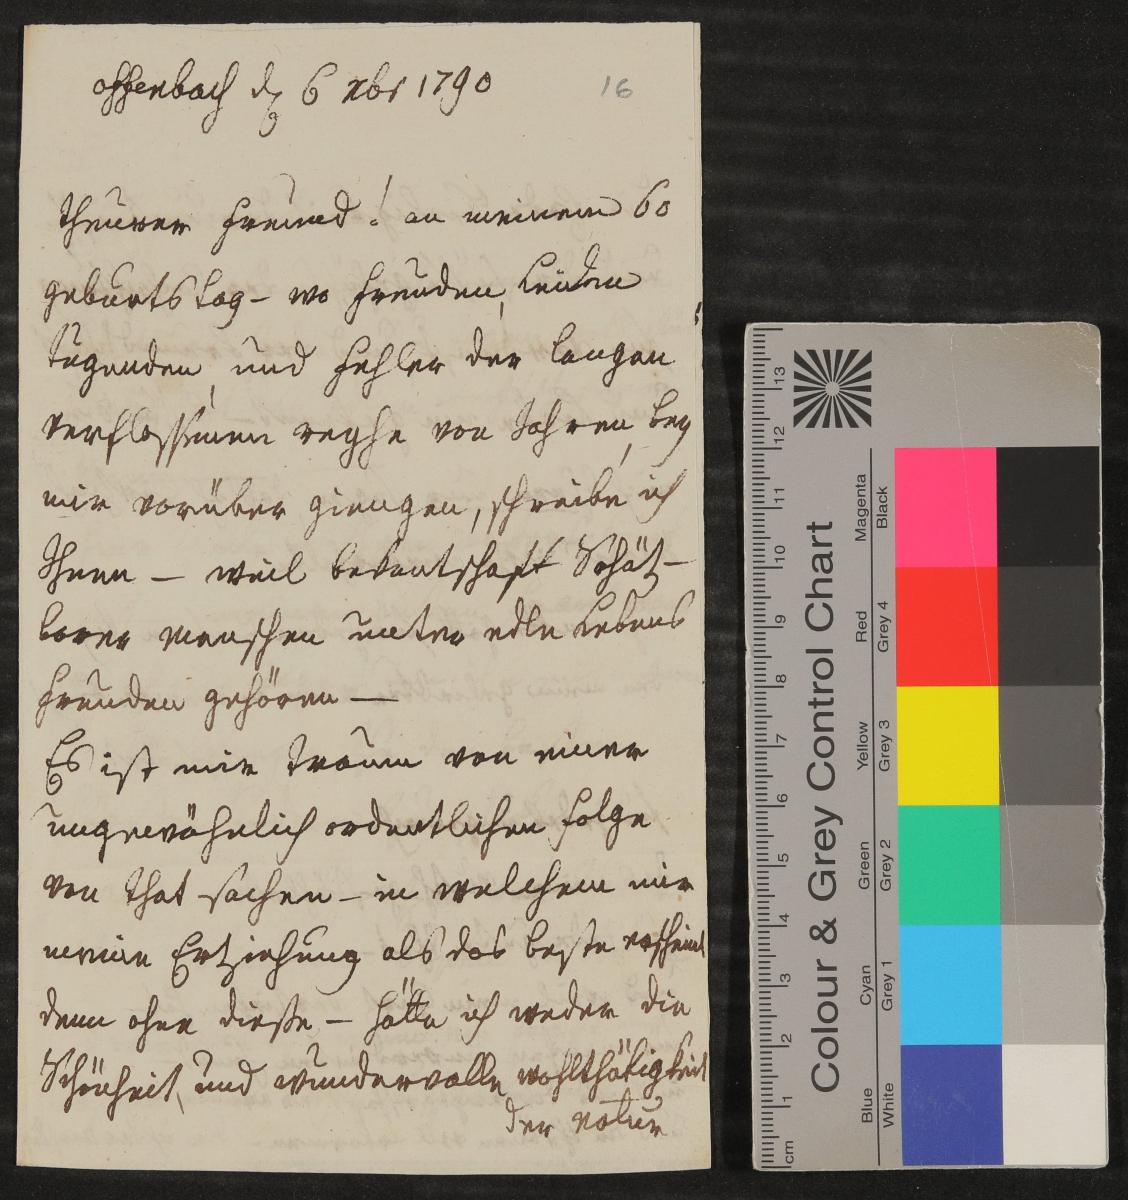 offenbach dn 6 xbr 1790
16
theurer Freund! an meinem 60
geburts tag – wo freuden, Leiden
tugenden, und Fehler der langen
verflossenen reyhe von Jahren, bey
mir vorüber giengen, schreibe ich
Ihnen – weil bekantschaft Schätz–
barer menschen unter edle Lebens
freuden gehören —
Es ist mir traum von einer
ungewöhnlich ordentlichen folge
von that sachen – in welchem mir
meine Erziehung als das beste erscheint
denn ohne dieße – hätte ich weder die
Schönheit, und wundervolle wohlthätigkeit
der natur
Colour & Grey Control Chart
Magenta
Red
Yellow
Green
Cyan
Blue
Black
Grey 4
Grey 3
Grey 2
Grey 1
White
13
12
11
10
9
8
7
6
5
4
3
2
1
cm